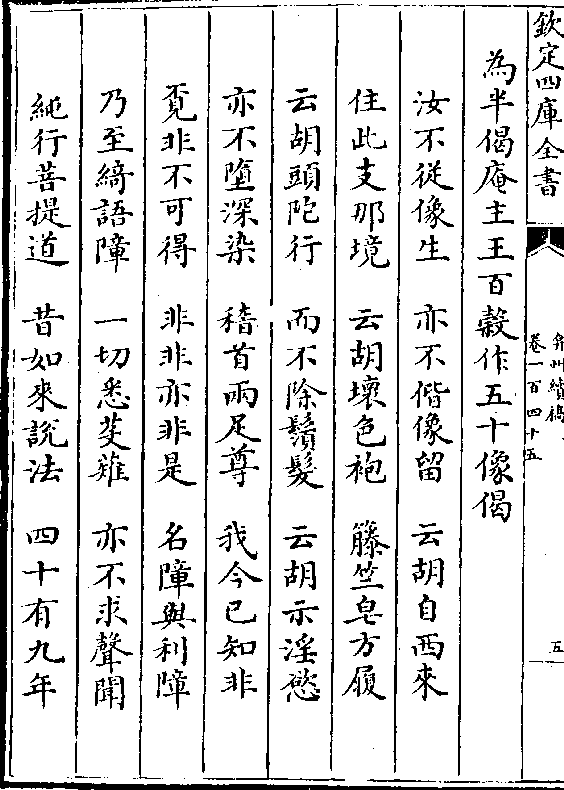 欽定四庫全書
弇州續稿
卷一百四十五
五
為半偈庵主王百榖作五十像偈
汝不從像生　亦不偕像留　云胡自西來
住此支那境　云胡壞色袍　籐竺皂方履
云胡頭陀行　而不除鬚髮　云胡示淫慾
亦不墮深染　稽首兩足尊　我今已知非
覔非不可得　非非亦非是　名障與利障
乃至綺語障　一切悉芟薙　亦不求聲聞
純行菩提道　昔如來說法　四十有九年